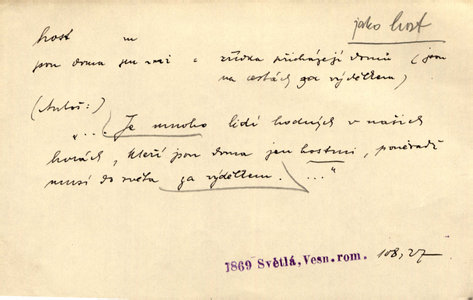 jako host
host m
jsou doma jen hosti : zřídka přicházejí domů (jsou
na cestách za výdělkem)
(Antoš:)
"... Je mnoho lidí hodných v našich
horách, kteří jsou doma jen hostmi, poněvadž
musí do světa za výdělkem. ..."
1869 Světlá, Vesn. rom. 108, 27